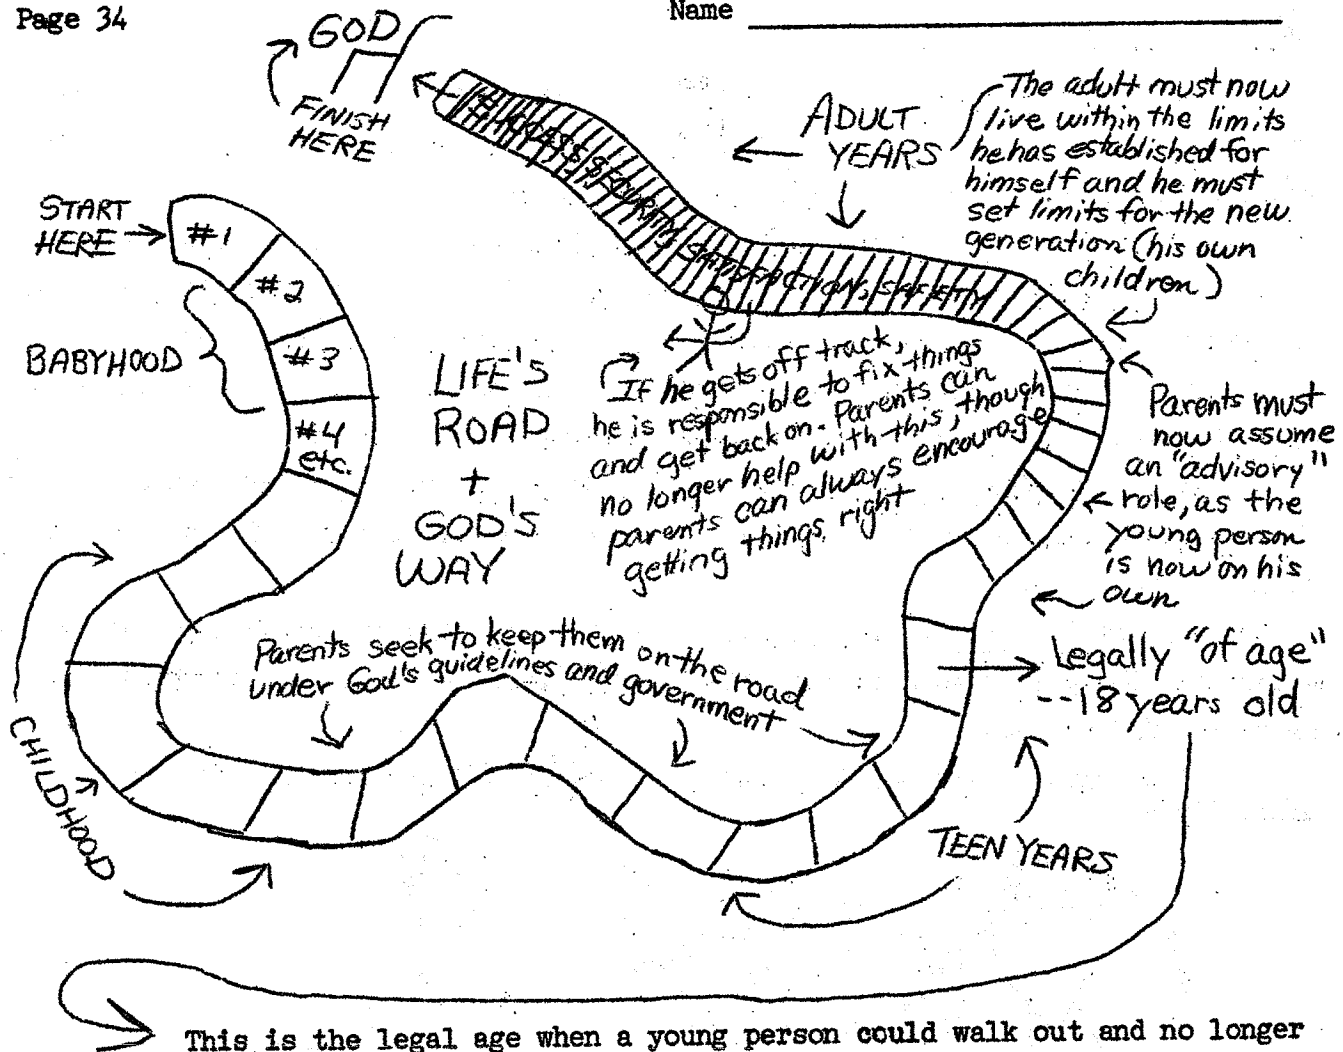 Page 34
Name
GOD
FINISH
HERE
START
HERE
#1
#2
#3
#4
etc.
BABYHOOD
LIFE'S
ROAD
+
GOD'S
WAY
ADULT
YEARS
The adult must now
live within the limits
he has established for
himself and he must
set limits for the new
generation (his own
children)
SECURITY, SATISFACTION, SAFETY
If he gets off track,
he is responsible to fix things
and get back on. Parents can
no longer help with this, though
parents can always encourage
getting things right
Parents must
now assume
an "advisory"
role, as the
young person
is now on his
own
Parents seek to keep them on the road
under God's guidelines and government
Legally "of age"
--18 years old
CHILDHOOD
TEEN YEARS
This is the legal age when a young person could walk out and no longer